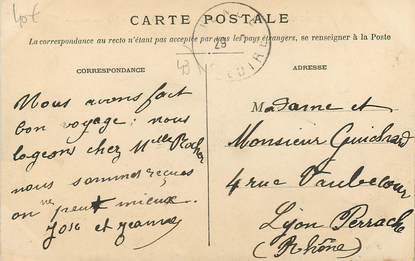 40€
CARTE POSTALE
La correspondance au recto n'étant pas acceptée par tous les pays étrangers, se renseigner à la Poste
28
43
CORRESPONDANCE
ADRESSE
Nous avons fait
bon voyage; nous
logeons chez Melle Rocher
nous sommes reçues
on ne peut mieux.
José et Jeanne
Madame et
Monsieur Guichard
4 rue Vaubecour
Lyon Perrache
(Rhône)